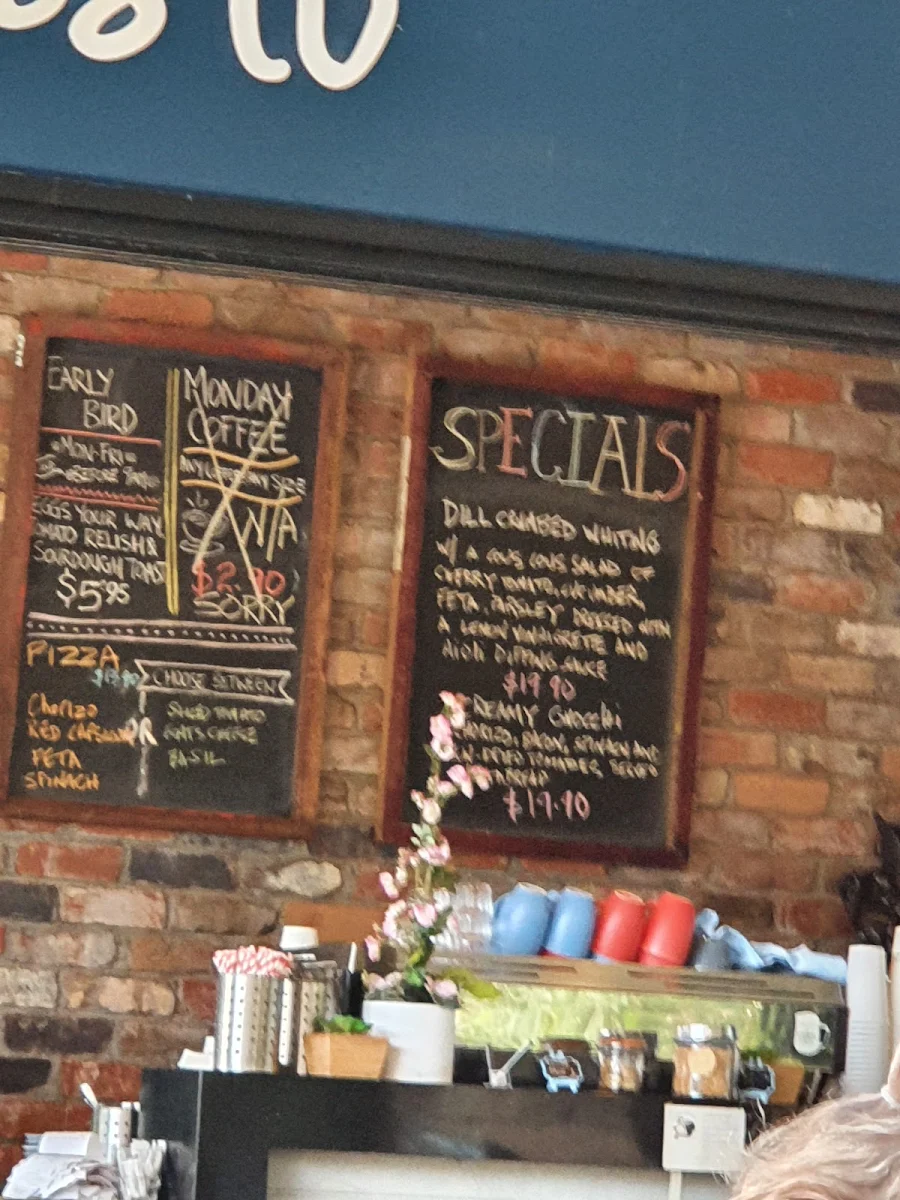 EARLY
BIRD
MON-FRI
BEFORE
EGGS YOUR WAY,
RELISH &
SOURDOUGH TOAST
$5.95
MONDAY
COFFEE
ANY COFFEE ANY SIZE
N/A
$2.90
SORRY
PIZZA
$13.90
CHOOSE BETWEEN
Chorizo
RED
FETA
SPINACH
OR
SLICED TOMATO
GOATS CHEESE
BASIL
SPECIALS
DILL CRUMBED WHITING
W/ A COUS COUS SALAD OF
CHERRY TOMATO, CUCUMBER,
FETA, PARSLEY DRESSED WITH
A LEMON VINAIGRETTE AND
AIOLI DIPPING SAUCE
$19.90
CREAMY GNOCCHI
CHORIZO, BACON, SPINACH AND
DRIED TOMATOES, SERVED
$19.90